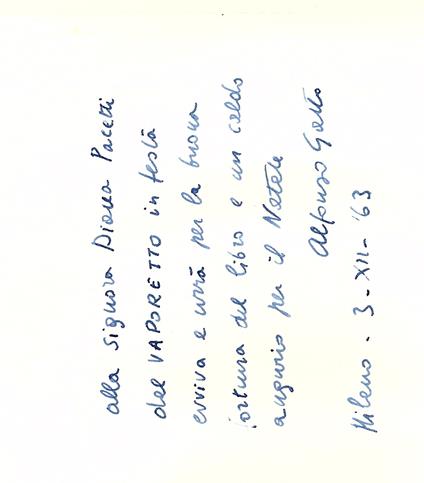 alla Signora Diana Pacetti
del VAPORETTO in festa
evviva e urrà per la buona
fortuna del libro e un caldo
augurio per il Natale
Alfonso Gatto
Milano - 3 - XII - '63